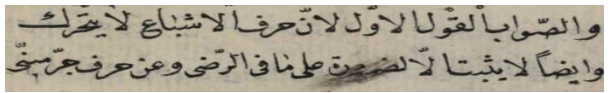 والصّواب القول الاوّل لانّ حرف الاشباع لا يتحرك
وايضاً لا يثبت الّا لضرورة على ما فى الرّضى وعن حرف جرّ مبنىّ